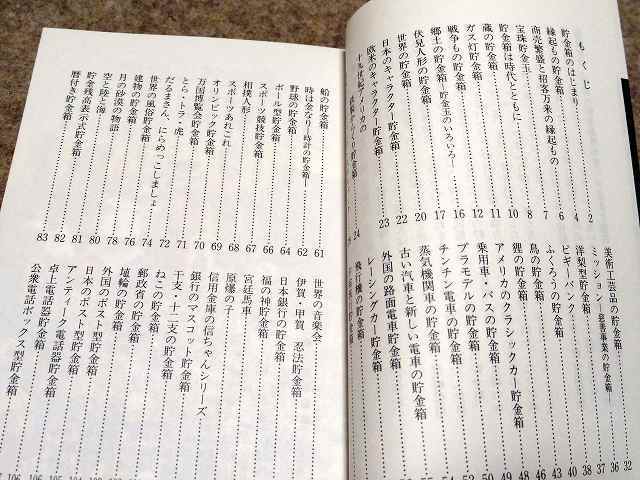 もくじ
貯金箱のはじまり……2
縁起もの貯金箱……4
商売繁盛と招客万来の縁起もの……6
宝珠貯金玉……7
貯金箱は時代とともに……8
蔵の貯金箱……10
ガス灯貯金箱……11
戦争もの貯金箱……12
郷土の貯金箱―貯金玉のいろいろ―……16
伏見人形の貯金箱……17
世界の貯金箱……20
日本のキャラクター貯金箱……22
欧米のキャラクター貯金箱……23
十九世紀、アメリカの
24
美術工芸品の貯金箱……32
ミッション―慈善事業の貯金箱……36
洋梨型貯金箱……37
ピギーバンク……38
ふくろうの貯金箱……40
鳥の貯金箱……43
鯉の貯金箱……46
アメリカのクラシックカー貯金箱……48
乗用車、バスの貯金箱……49
プラモデルの貯金箱……50
チンチン電車の貯金箱……52
蒸気機関車の貯金箱……54
古い汽車と新しい電車の貯金箱……55
外国の路面電車貯金箱
レーシングカー貯金箱
飛行機の貯金箱
船の貯金箱……61
時は金なり―時計の貯金箱―……62
野球の貯金箱……64
ボール型貯金箱……66
スポーツ競技貯金箱……66
相撲人形……67
スポーツあれこれ……68
オリンピック貯金箱……69
万国博覧会貯金箱……70
とら・トラ・虎……71
だるまさん、にらめっこしましょ……72
世界の風俗貯金箱……74
建物の貯金箱……76
月の砂漠の物語……78
空と陸と海……80
貯金残高表示式貯金箱……81
暦付き貯金箱……82
83
世界の音楽会
伊賀・甲賀 忍法貯金箱
日本銀行の貯金箱
福の神貯金箱
宮廷馬車
原爆の子
信用金庫の信ちゃんシリーズ
銀行のマスコット貯金箱
干支・十二支の貯金箱
ねこの貯金箱
郵政省の貯金箱
埴輪の貯金箱
外国のポスト型貯金箱
日本のポスト型貯金箱
アンティーク電話器貯金箱
卓上電話器貯金箱
公衆電話ボックス型貯金箱